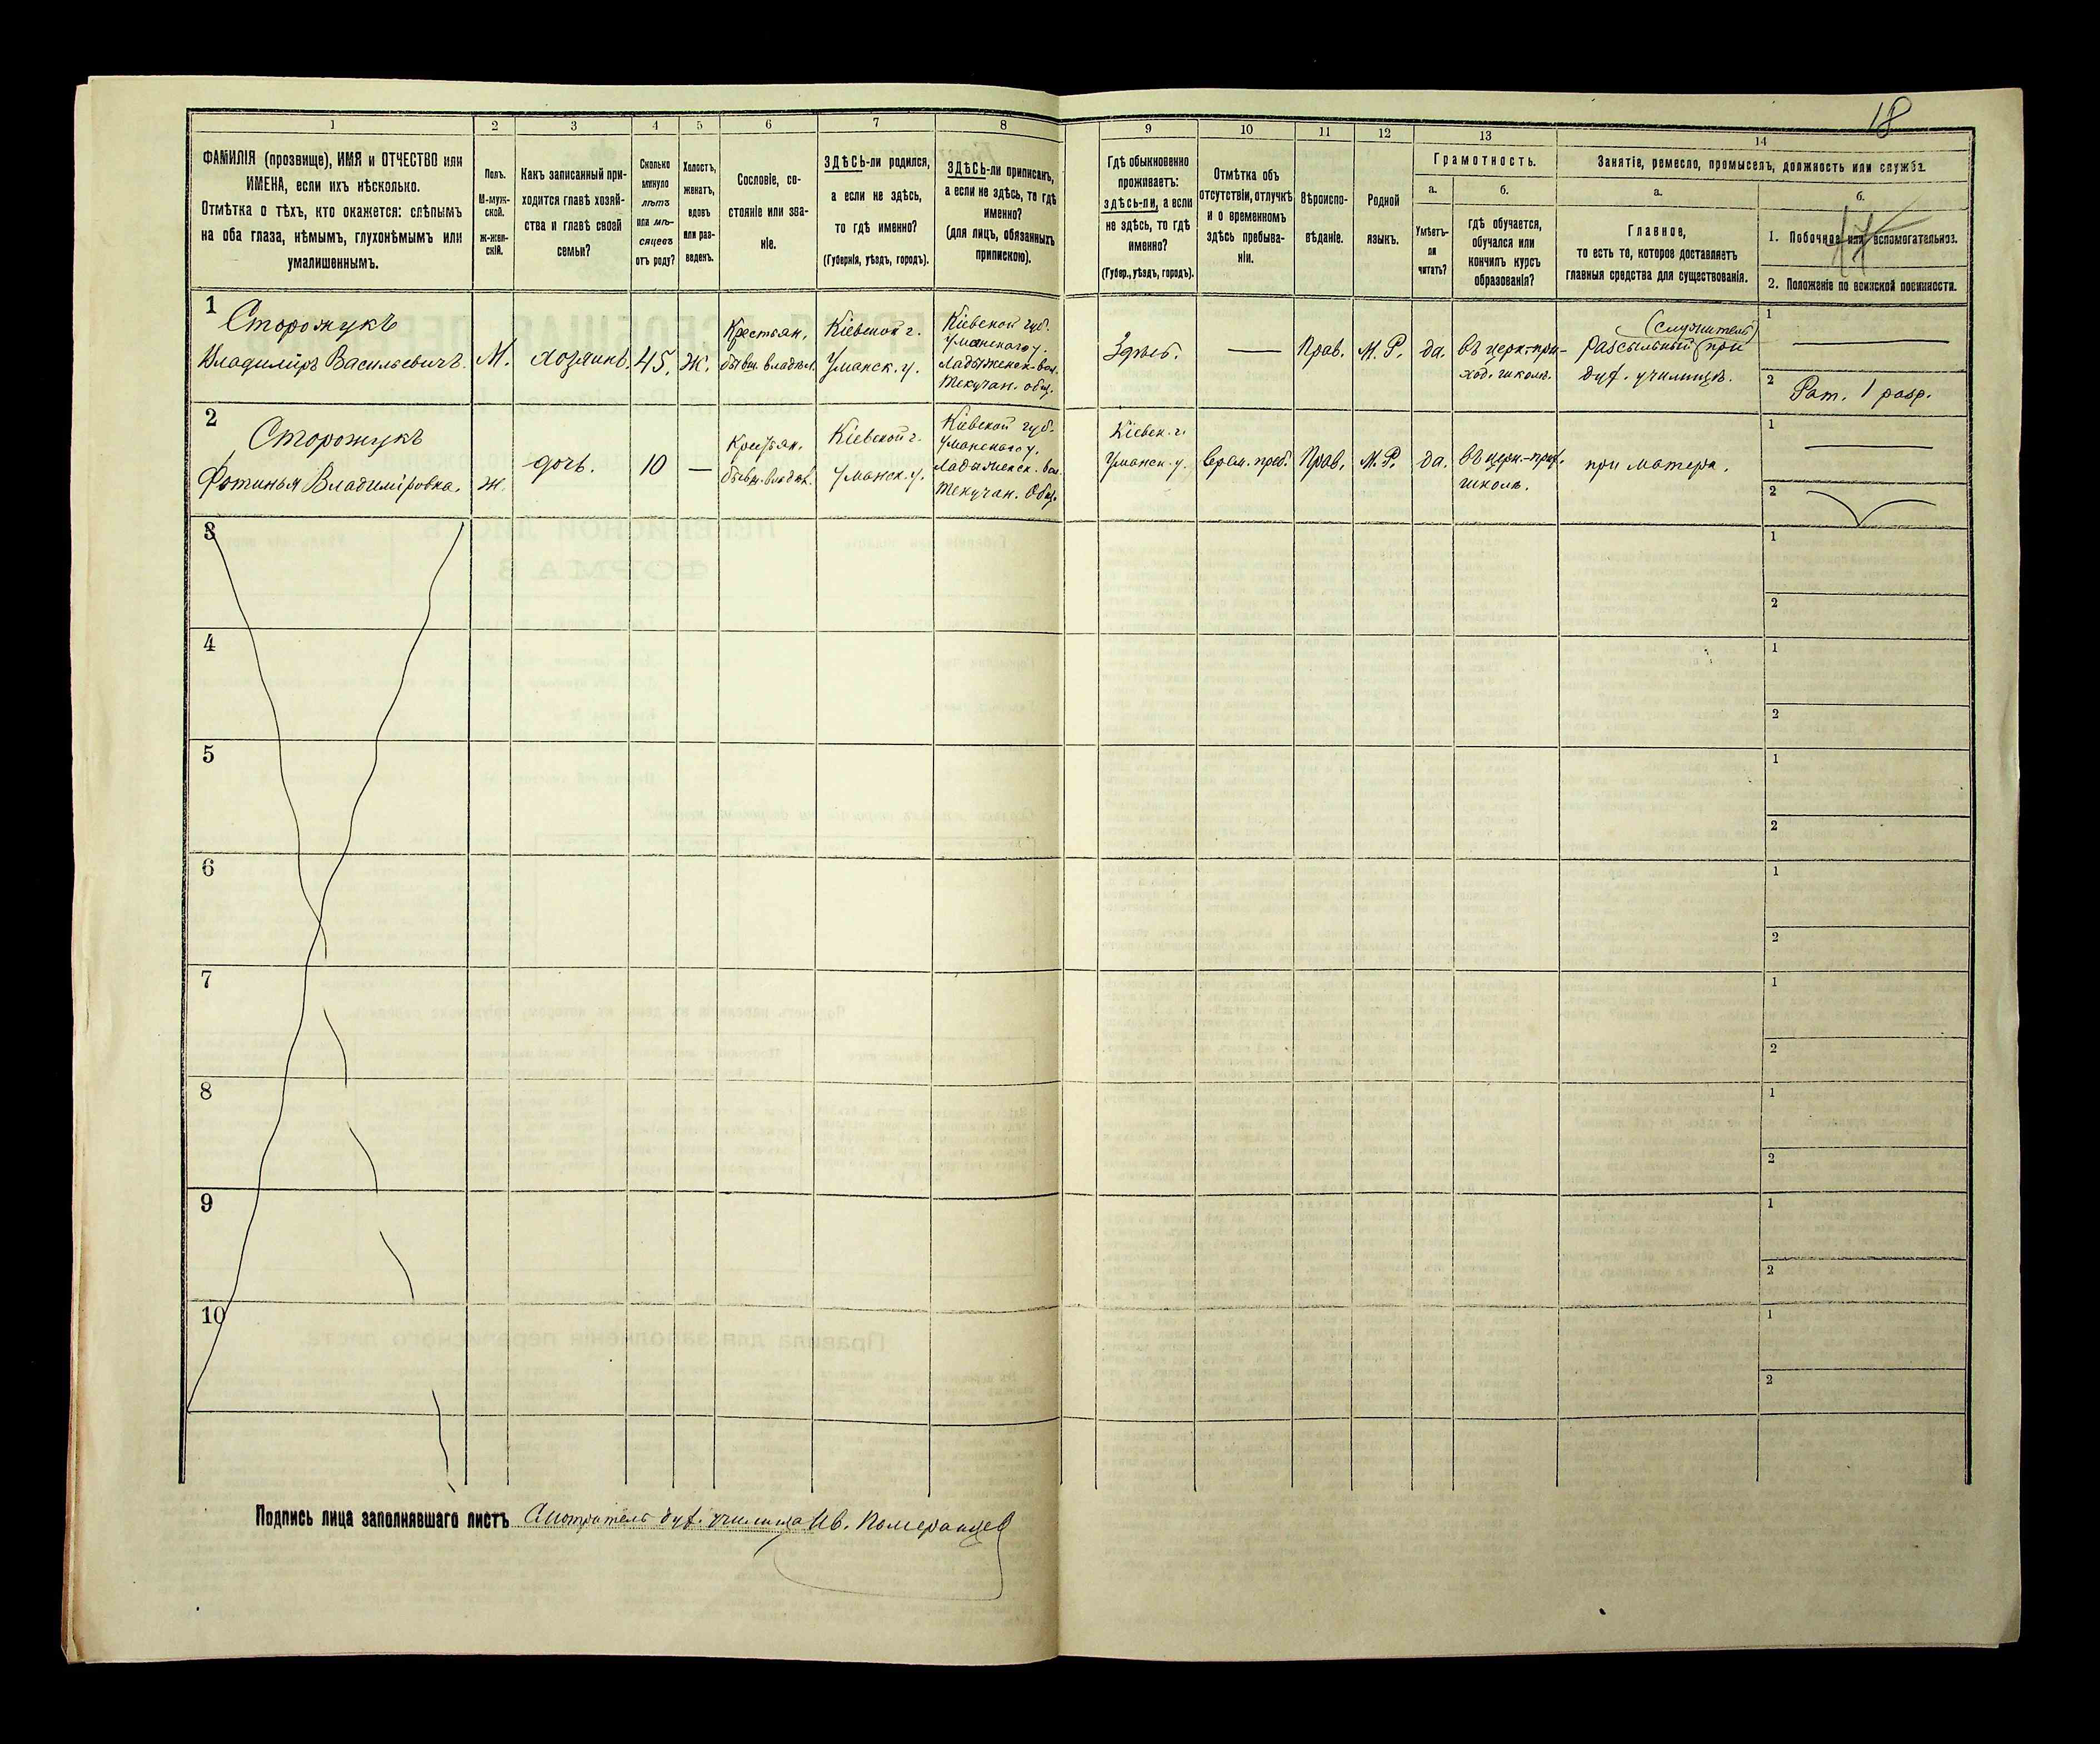 18
1
2
3
4
5
6
7
8
9
10
11
12
13
14
ФАМИЛІЯ (прозвище), ИМЯ и ОТЧЕСТВО или
ИМЕНА, если ихъ нѣсколько.
Отмѣтка о тѣхъ, кто окажется: слѣпымъ
на оба глаза, нѣмымъ, глухонѣмымъ или
умалишеннымъ.
Полъ.
М-муж-
ской.
Ж-жен-
скій.
Какъ записанный при-
ходится главѣ хозяй-
ства и главѣ своей
семьи?
Сколько
минуло
лѣтъ
или мѣ-
сяцевъ
отъ роду?
Холостъ,
женатъ,
вдовъ
или раз-
веденъ.
Сословіе, со-
стояніе или зва-
ніе.
ЗДѢСЬ-ли родился,
а если не здѣсь,
то гдѣ именно?
(Губернія, уѣздъ, городъ).
ЗДѢСЬ-ли приписанъ,
а если не здѣсь, то гдѣ
именно?
(для лицъ, обязанныхъ
припискою).
Гдѣ обыкновенно
проживаетъ:
здѣсь-ли, а если
не здѣсь, то гдѣ
именно?
(Губер., уѣздъ, городъ).
Отмѣтка объ
отсутствіи, отлучкѣ
и о временномъ
здѣсь пребыва-
ніи.
Вѣроиспо-
вѣданіе.
Родной
языкъ.
Грамотность.
а.
Умѣетъ-
ли
читать?
б.
Гдѣ обучается,
обучался или
кончилъ курсъ
образованія?
Занятіе, ремесло, промыселъ, должность или служба.
а.
Главное,
то есть то, которое доставляетъ
главныя средства для существованія.
б.
1. Побочное или вспомогательное.
2. Положеніе по воинской повинности.
1
Сторожукъ
Владиміръ Васильевичъ.
М.
хозяинъ.
45.
Ж.
Крестьян.
бывш. владѣл.
Кіевской г.
Уманск. у.
Кіевской губ.
Уманскаго у.
Ладыженск. вол.
Текучан. общ.
Здѣсь.
Прав.
М. Р.
да.
въ церк.-при-
ход. школѣ.
(служитель)
Разсыльный при
дух. училищѣ.
1
2
Рат. 1 разр.
2
Сторожукъ
Фотинья Владиміровна.
Ж.
дочь.
10
—
Крестьян.
бывш. владѣл.
Кіевской г.
Уманск. у.
Кіевской губ.
Уманскаго у.
Ладыженск. вол.
Текучан. Общ.
Кіевск. г.
Уманск. у.
врем. преб.
Прав.
М. Р.
да.
въ церк.-прих.
школѣ.
при матери.
1
2
3
1
2
4
1
2
5
1
2
6
1
2
7
1
2
8
1
2
9
1
2
10
1
2
Подпись лица заполнявшаго листъ Смотритель дух. училища Ив. Померанцев